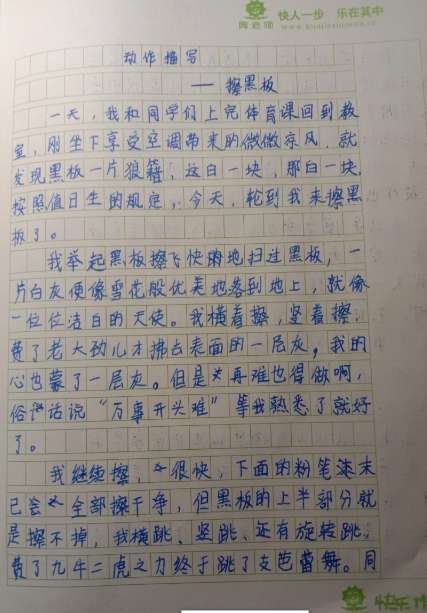 快人一步 乐在其中
动作描写
——擦黑板
一天，我和同学们上完体育课回到教
室，刚坐下享受空调带来的微微凉风，就
发现黑板一片狼籍，这白一块，那白一块，
按照值日生的规定，今天，轮到我来擦黑
板了。
我举起黑板擦飞快的地扫过黑板，一
片白灰便像雪花般优美地落到地上，就像
一位位洁白的天使。我横着擦，竖着擦，
费了老大劲儿才拂去表面的一层灰，我的
心也蒙了一层灰。但是再难也得做啊，
俗话说“万事开头难”等我熟悉了就好
了。
我继续擦，很快，下面的粉笔沫末
已全部擦干净，但黑板的上半部分就
是擦不掉，我横跳、竖跳、还有旋转跳，
费了九牛二虎之力终于跳了支芭蕾舞。同
快乐作